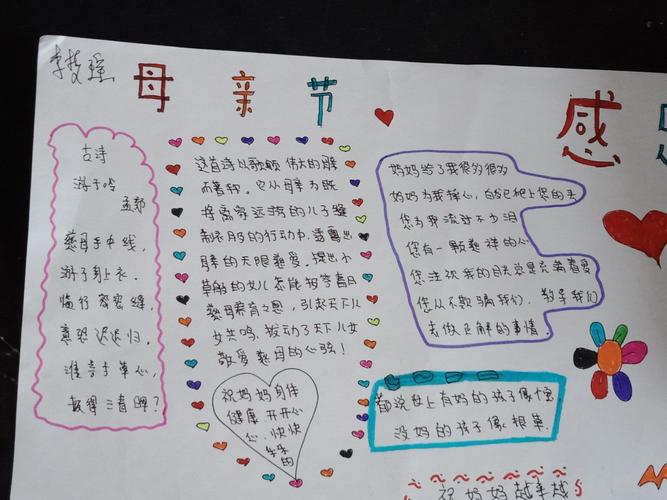 李梦瑶
母亲节
感恩
古诗
游子吟
孟郊
慈母手中线,
游子身上衣。
临行密密缝,
意恐迟迟归。
谁言寸草心,
报得三春晖?
这首诗以歌颂伟大的母
而著称。它从母为既
将离家远游的儿子缝
制衣服的行动中,透露出
母亲的无限慈爱。提出小
草般的女儿怎能报答春日
慈母养育之恩,引起天下儿
女共鸣,拨动了天下儿女
敬爱慈母的心弦!
祝妈妈身体
健康 开开心
心,快快
乐乐
的
妈妈给了我很多很多
妈妈为我操心,白发已爬上您的头
您为我流过不少泪
您有一颗慈祥的心
您注视我的目光总是充满着爱
您从不欺骗我们,教导我们
去做正确的事情。
都说世上有妈的孩子像个宝
没妈的孩子像根草.
祝妈妈越来越